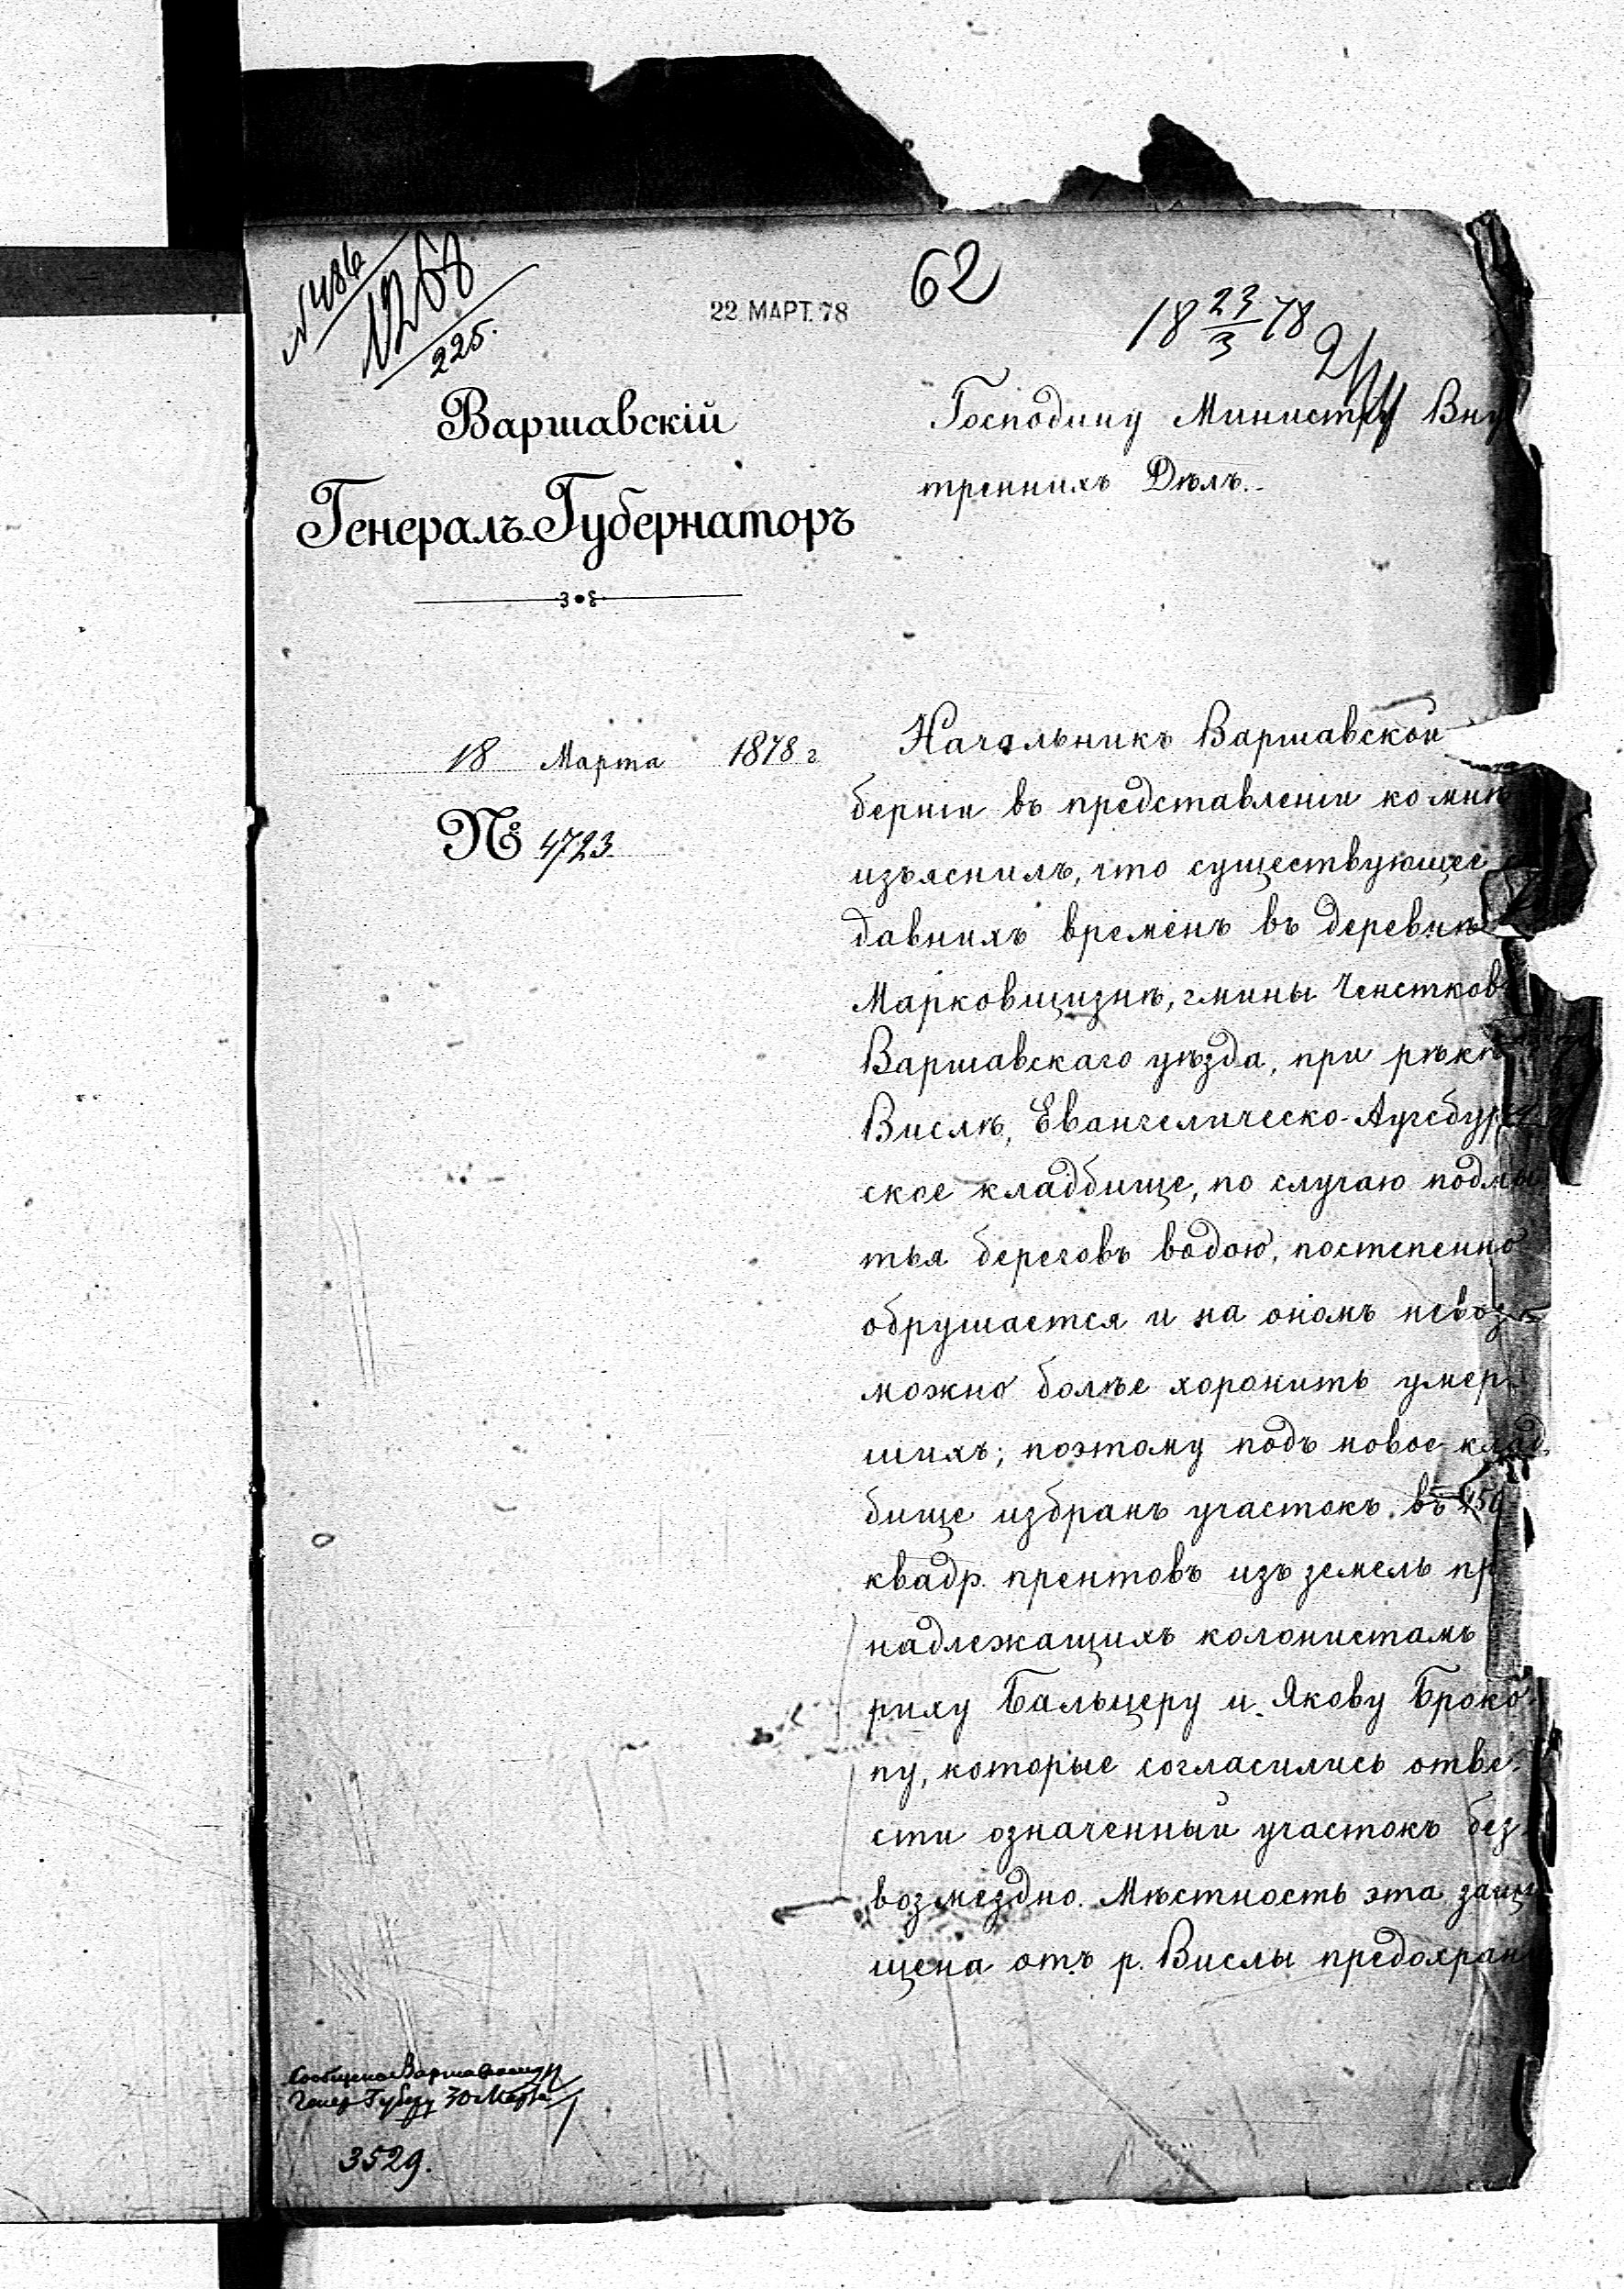 № 486
1268
225.
22 МАРТ. 78
62
18 23/3 78
Варшавскій
Генералъ-Губернаторъ
18 Марта 1878 г
№ 4723.
Господину Министру Вну
треннихъ Дѣлъ.
Начальникъ Варшавской
берніи въ представленіи ко мнѣ
изъяснилъ, что существующее
давнихъ временъ въ деревнѣ
Марковщизнѣ, гмины Ченстков
Варшавскаго уѣзда, при рѣкѣ
Вислѣ, Евангелическо-Аугсбург
ское кладбище, по случаю подмы
тья береговъ водою, постепенно
обрушается и на ономъ невоз
можно болѣе хоронить умер
шихъ; поэтому подъ новое клад
бище избранъ участокъ въ
квадр. прентовъ изъ земель пр
надлежащихъ колонистамъ
риху Бальцеру и Якову Броко
пу, которые согласились отве
сти означенный участокъ без
возмездно. Мѣстность эта защи
щена отъ р. Вислы предохран
Сообщено Варшавскому
Генер Губерн 30 Марта
3529.